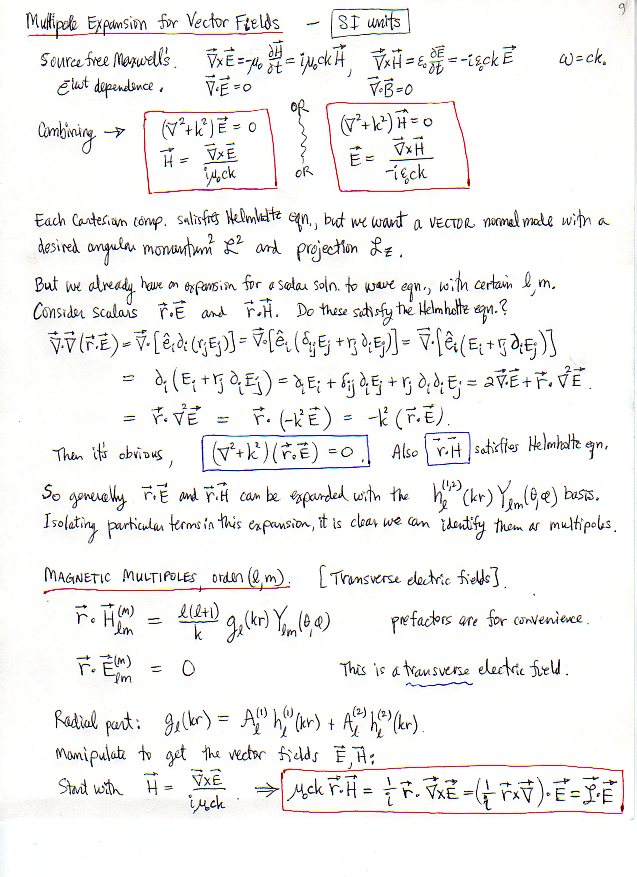 9
Multipole Expansion for Vector Fields – SI units
Source free Maxwell's. ∇⃗×E⃗ = -μ₀ ∂H⃗/∂t = iμ₀ckH⃗, ∇⃗×H⃗ = ε₀ ∂E⃗/∂t = -iε₀ckE⃗ ω=ck.
e^{-iωt} dependence. ∇⃗·E⃗=0 ∇⃗·B⃗=0
OR
Combining → (∇²+k²)E⃗ = 0 (∇²+k²)H⃗=0
H⃗ = ∇⃗×E⃗/(iμ₀ck) E⃗ = ∇⃗×H⃗/(-iε₀ck)
OR
Each Cartesian comp. satisfies Helmholtz eqn., but we want a VECTOR normal mode with a
desired angular momentum² ℒ² and projection ℒz.
But we already have an expansion for a scalar soln. to wave eqn., with certain l,m.
Consider scalars r⃗·E⃗ and r⃗·H⃗. Do these satisfy the Helmholtz eqn.?
∇⃗·∇⃗(r⃗·E⃗) = ∇⃗·[êᵢ∂ᵢ(rⱼEⱼ)] = ∇⃗·[êᵢ(δᵢⱼEⱼ + rⱼ∂ᵢEⱼ)] = ∇⃗·[êᵢ(Eᵢ+rⱼ∂ᵢEⱼ)]
= ∂ᵢ(Eᵢ+rⱼ∂ᵢEⱼ) = ∂ᵢEᵢ + δᵢⱼ∂ᵢEⱼ + rⱼ∂ᵢ∂ᵢEⱼ = 2∇⃗·E⃗ + r⃗·∇²E⃗.
= r⃗·∇²E⃗ = r⃗·(-k²E⃗) = -k²(r⃗·E⃗).
Then it's obvious, (∇²+k²)(r⃗·E⃗) = 0. Also r⃗·H⃗ satisfies Helmholtz eqn.
So generally r⃗·E⃗ and r⃗·H⃗ can be expanded with the h_l^{(1,2)}(kr) Y_{lm}(θ,φ) basis.
Isolating particular terms in this expansion, it is clear we can identify them as multipoles.
MAGNETIC MULTIPOLES, order (l,m). [Transverse electric fields].
r⃗·H⃗_{lm}^{(m)} = l(l+1)/k g_l(kr) Y_{lm}(θ,φ) prefactors are for convenience.
r⃗·E⃗_{lm}^{(m)} = 0 This is a transverse electric field.
Radial part: g_l(kr) = A_l^{(1)} h_l^{(1)}(kr) + A_l^{(2)} h_l^{(2)}(kr).
Manipulate to get the vector fields E⃗, H⃗:
Start with H⃗ = ∇⃗×E⃗/(iμ₀ck). ⇒ μ₀ck r⃗·H⃗ = 1/i r⃗·∇⃗×E⃗ = (1/i r⃗×∇⃗)·E⃗ = ℒ⃗·E⃗